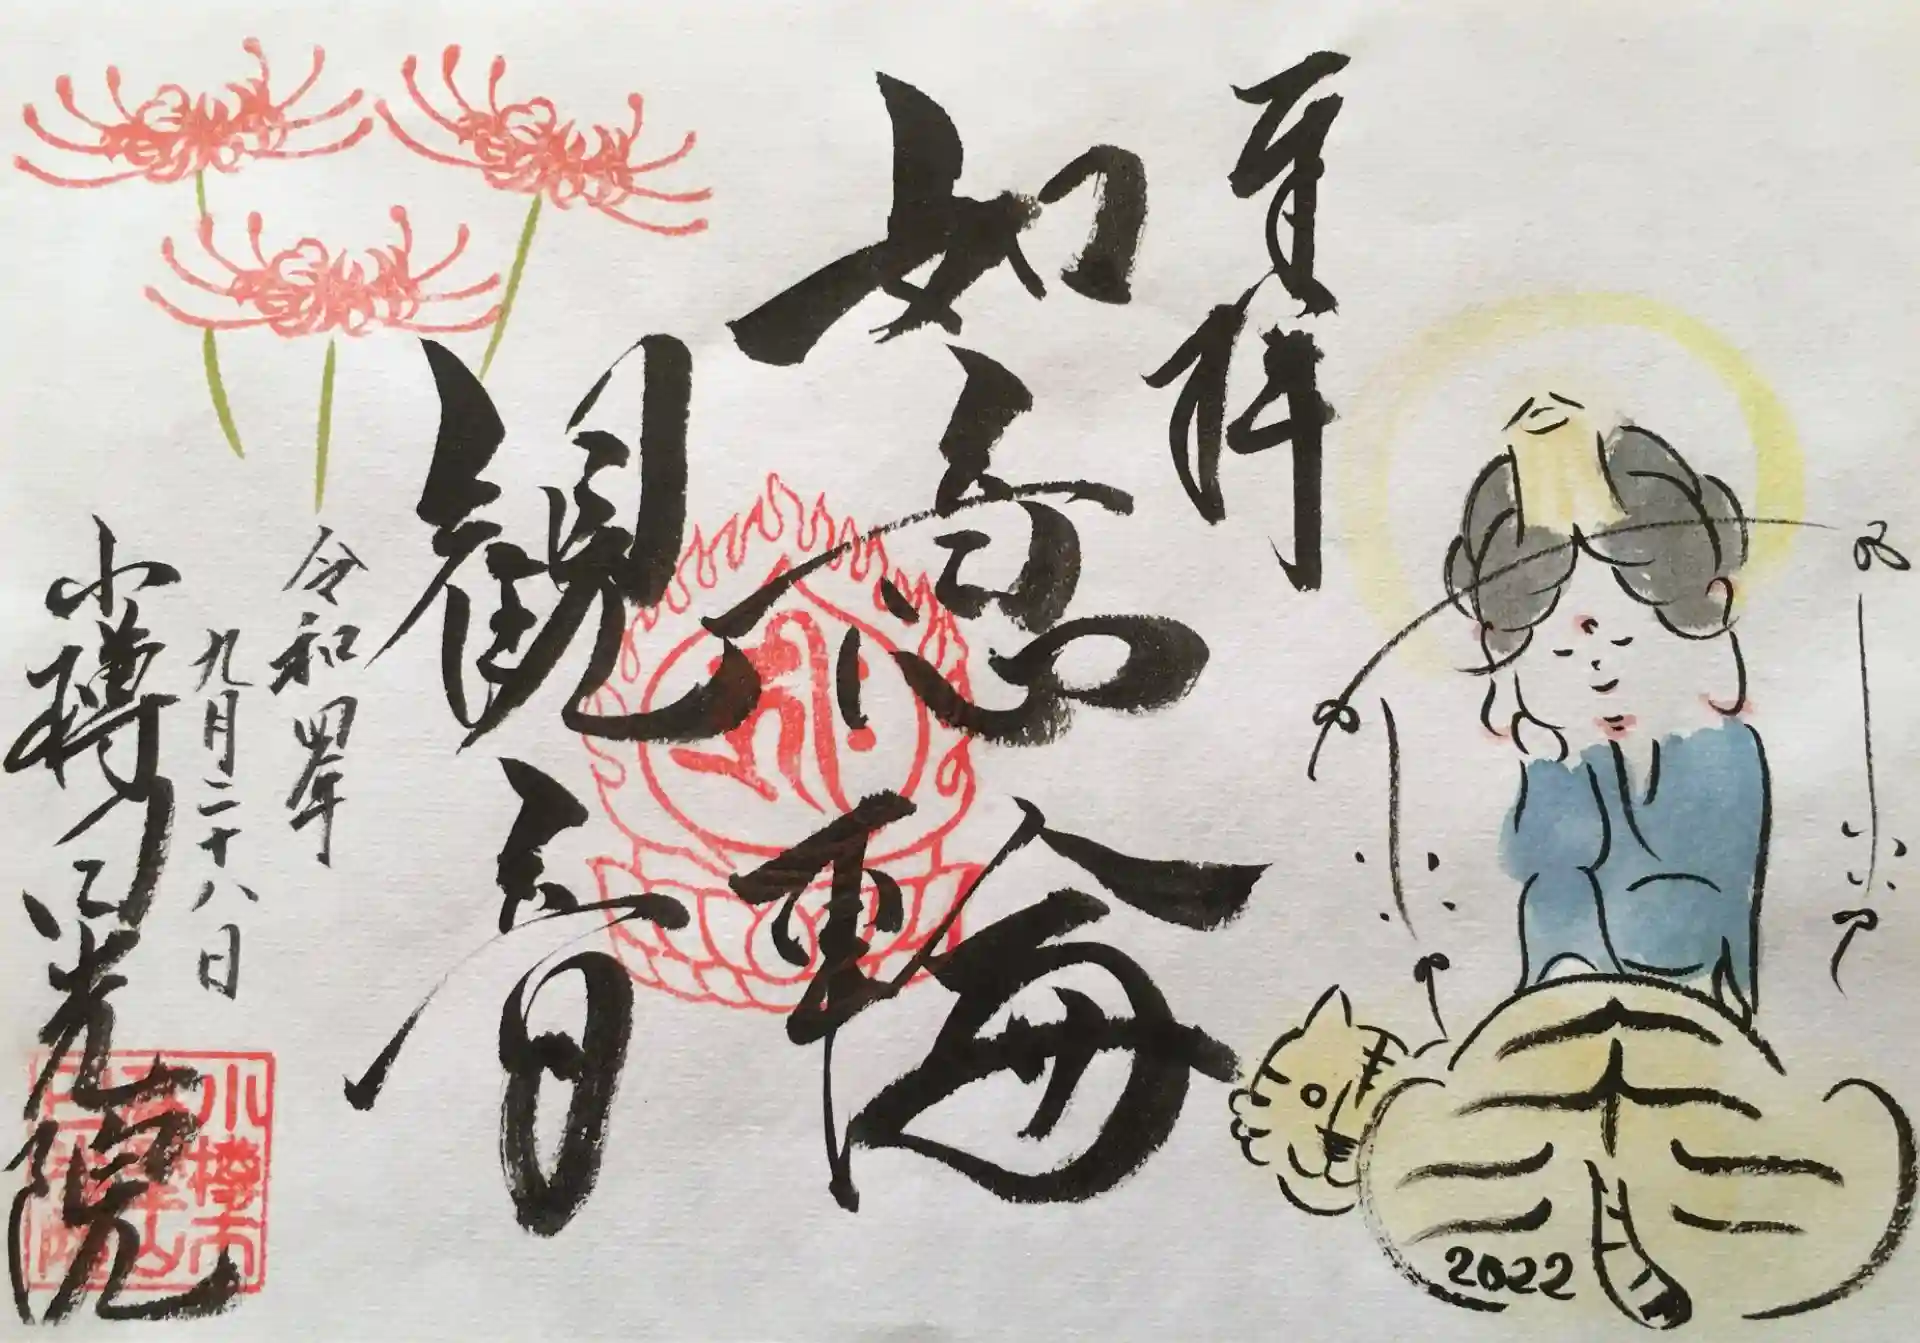 奉拝
如意輪
観音
令和四年
九月二十八日
小樽日光院
小樽市
2022